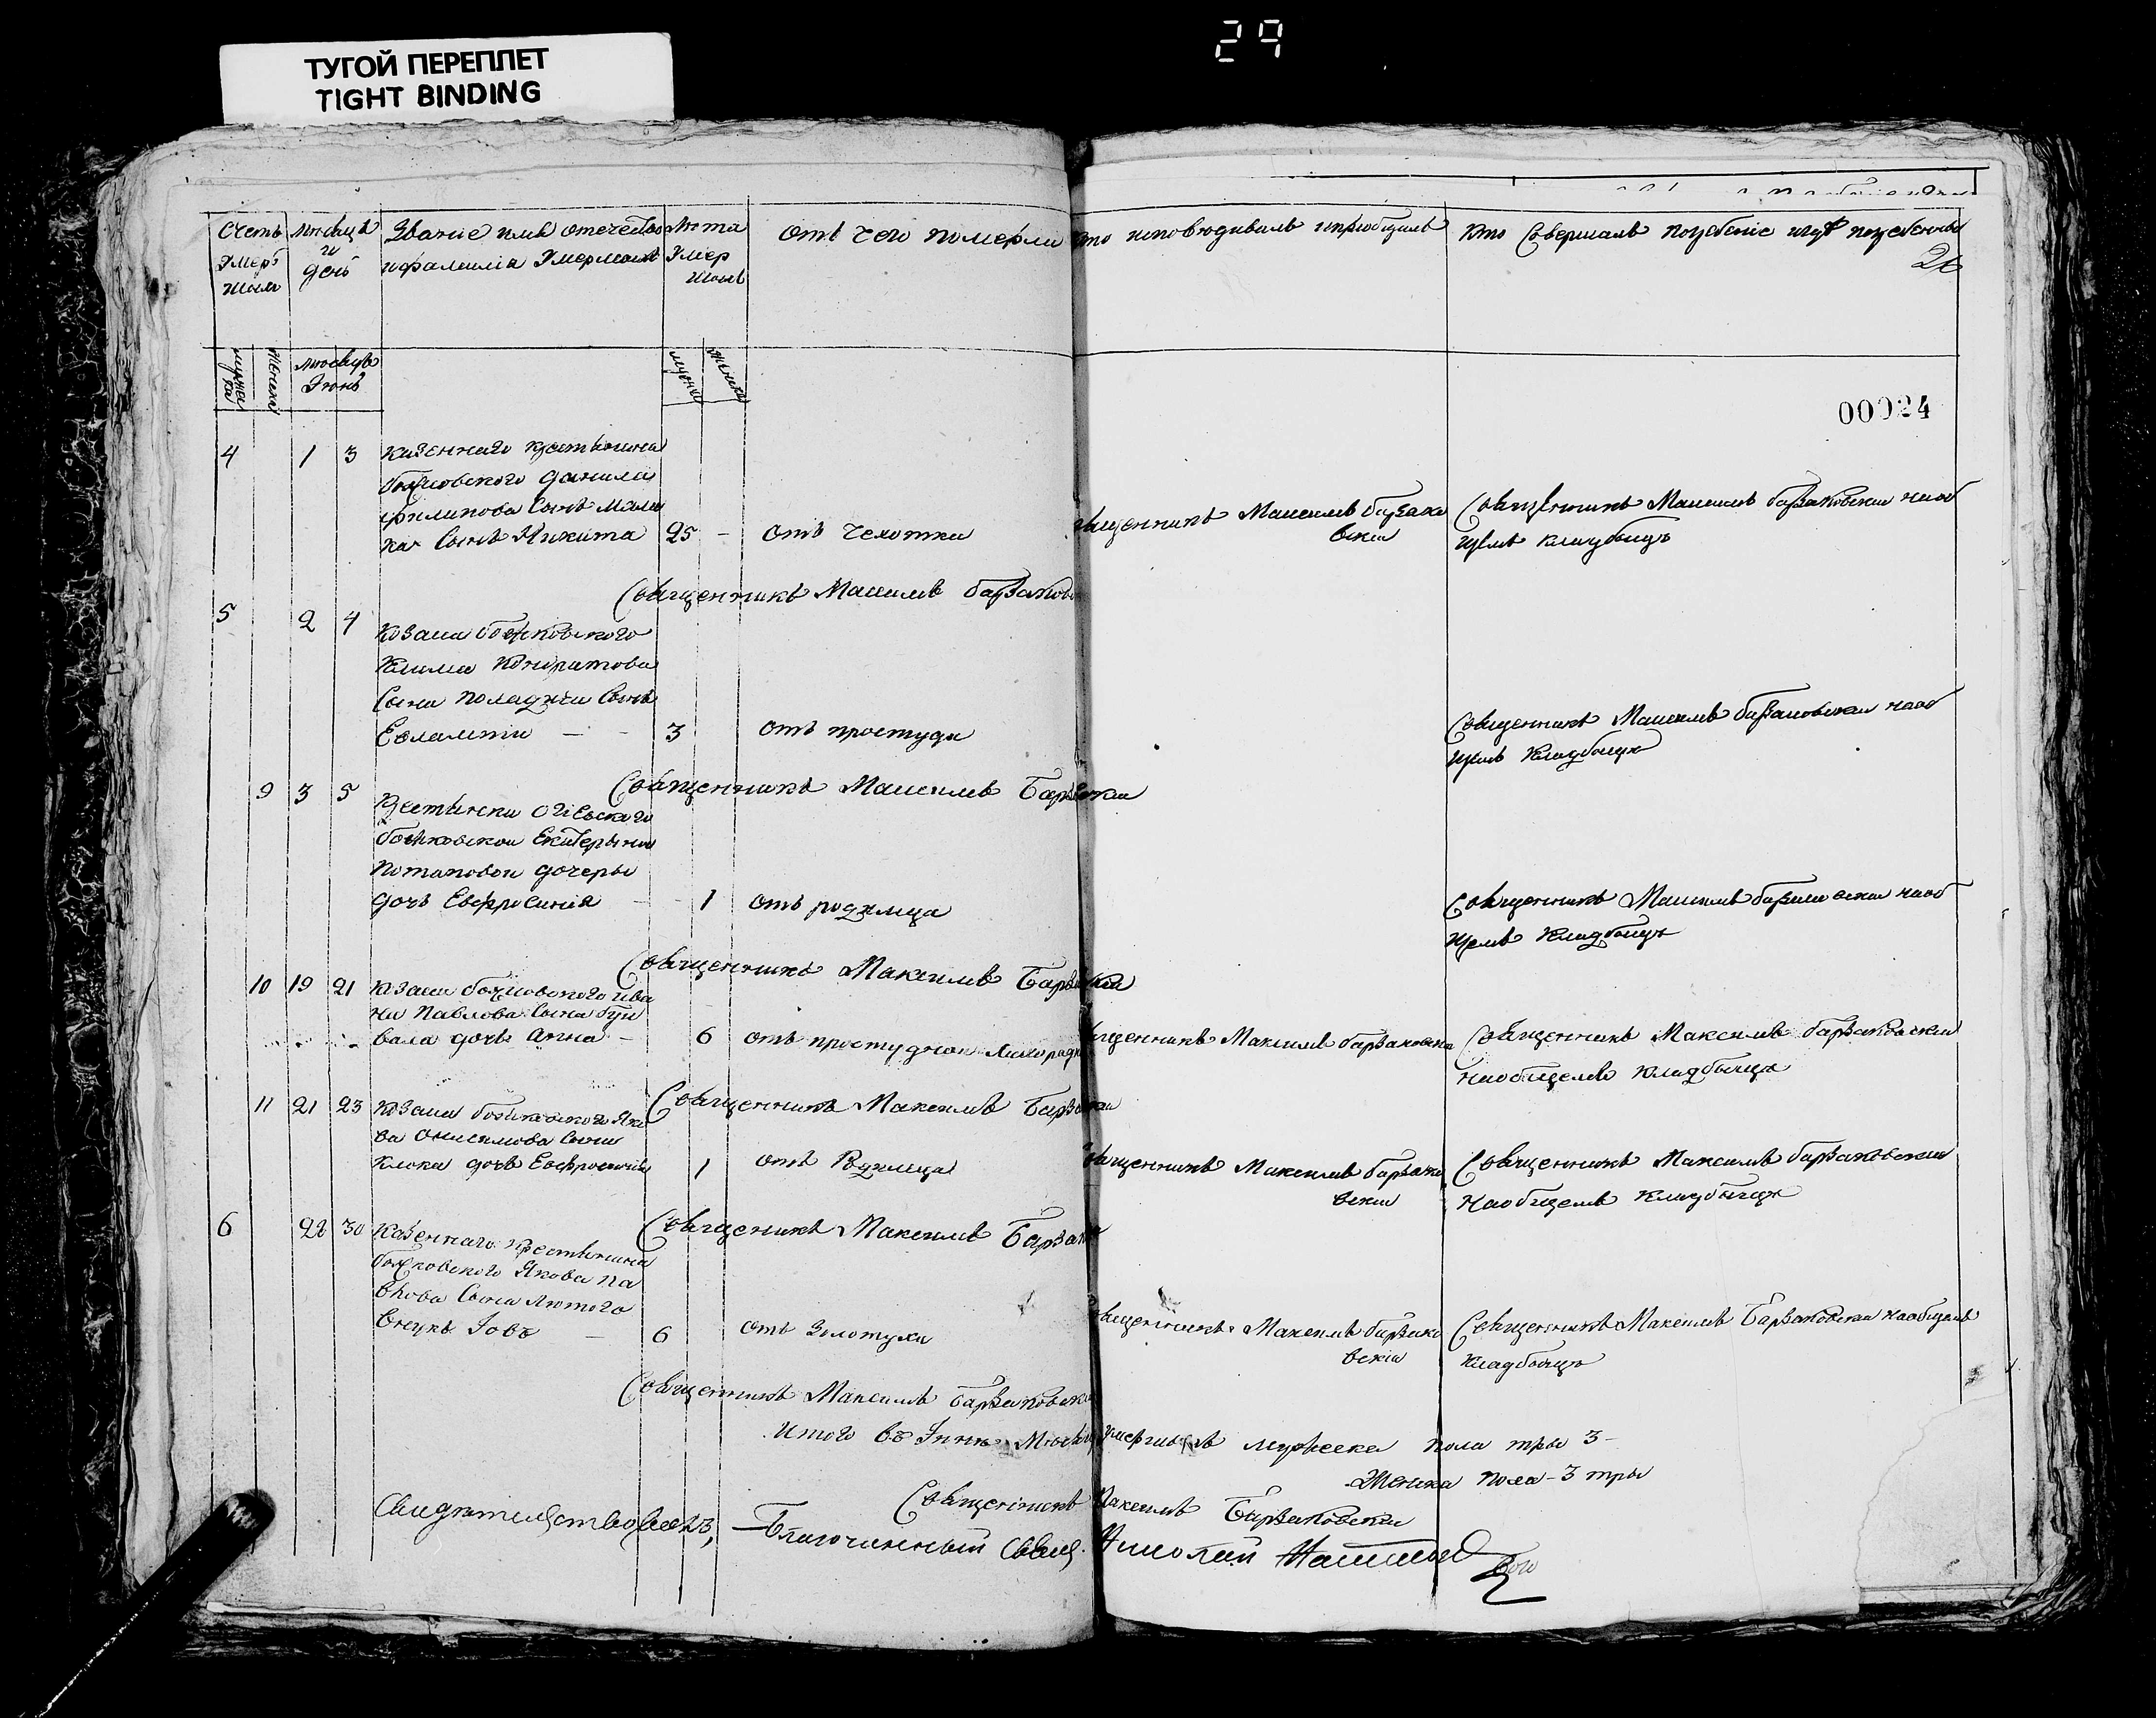 29
ТУГОЙ ПЕРЕПЛЕТ
TIGHT BINDING
Счетъ умершихъ
Месяцъ и день
Званіе имя отечество и фамилія умершихъ
Лета умершихъ
Отъ чего померли
кто исповедивалъ и приобщалъ
кто совершалъ погребеніе и где погребены
26
мужеска
женска
месяцъ Іюнь
мужеска
женска
00024
4 1 3 казеннаго крестьянина
Данила
Филипова сынъ
сынъ Никита 25 - отъ чехотки
Священникъ Максимъ Барзаковскій
Священникъ Максимъ Барзаковскій на общемъ кладбище
Священникъ Максимъ Барзаковскій
5 2 4 козака
Клима Кондратова
сына сынъ
Евлампій - - 3 отъ простуди
Священникъ Максимъ Барзаковскій на общемъ кладбище
Священникъ Максимъ Барзаковскій
9 3 5 крестьянки
Екатерыни
Потаповой дочеры
дочь Евфросинія - - 1 отъ родимца
Священникъ Максимъ Барзаковскій на общемъ кладбище
Священникъ Максимъ Барзаковскій
10 19 21 козака Ива
на Павлова сына
дочь Анна - 6 отъ простудной лихорадки
Священникъ Максимъ Барзаковскій
Священникъ Максимъ Барзаковскій
на общемъ кладбище
Священникъ Максимъ Барзаковскій
11 21 23 козака Яко
ва Онисимова сына
дочь Евфросинія 1 отъ родимца
Священникъ Максимъ Барзаковскій
Священникъ Максимъ Барзаковскій
на общемъ кладбище
Священикъ Максимъ Барзаковскій
6 22 30 казеннаго крестьянина
Якова Па
влова сына Лютого
внукъ Іовъ - 6 отъ золотухи
Священникъ Максимъ Барзаковскій
Священникъ Максимъ Барзаковскій на общемъ
кладбище
Священникъ Максимъ Барзаковскій
Итого въ Іюне месяце умершихъ мужеска пола тры 3 -
Женска пола - 3 тры
Священникъ Максимъ Барзаковскій
Свидетельствовалъ, Благочинный Свящ. Николай